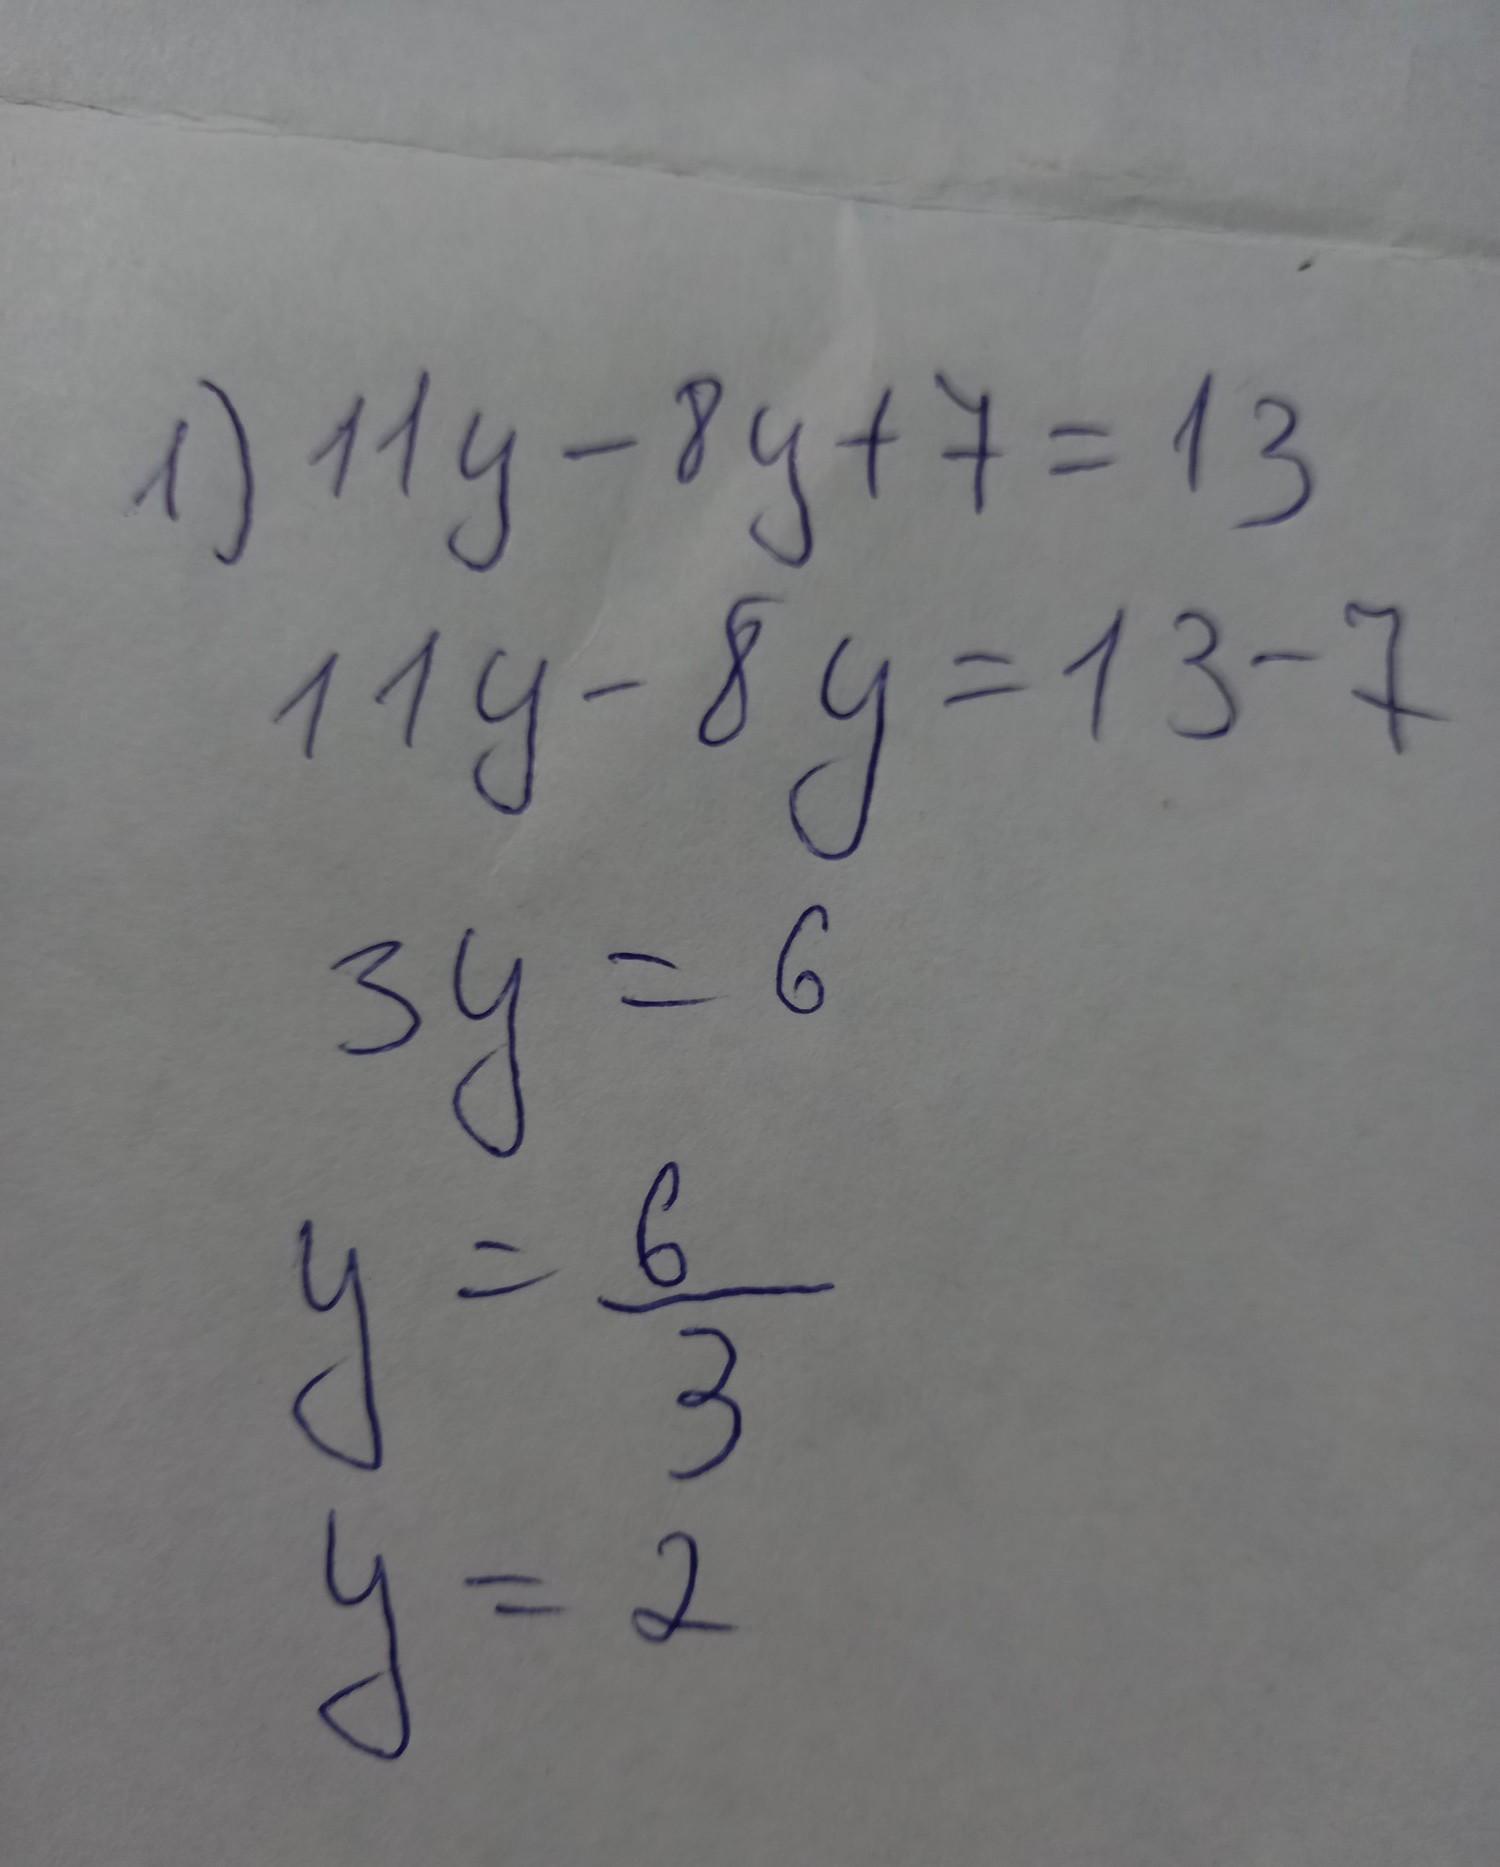 1) 11y - 8y + 7 = 13
11y - 8y = 13 - 7
3y = 6
y = 6/3
y = 2